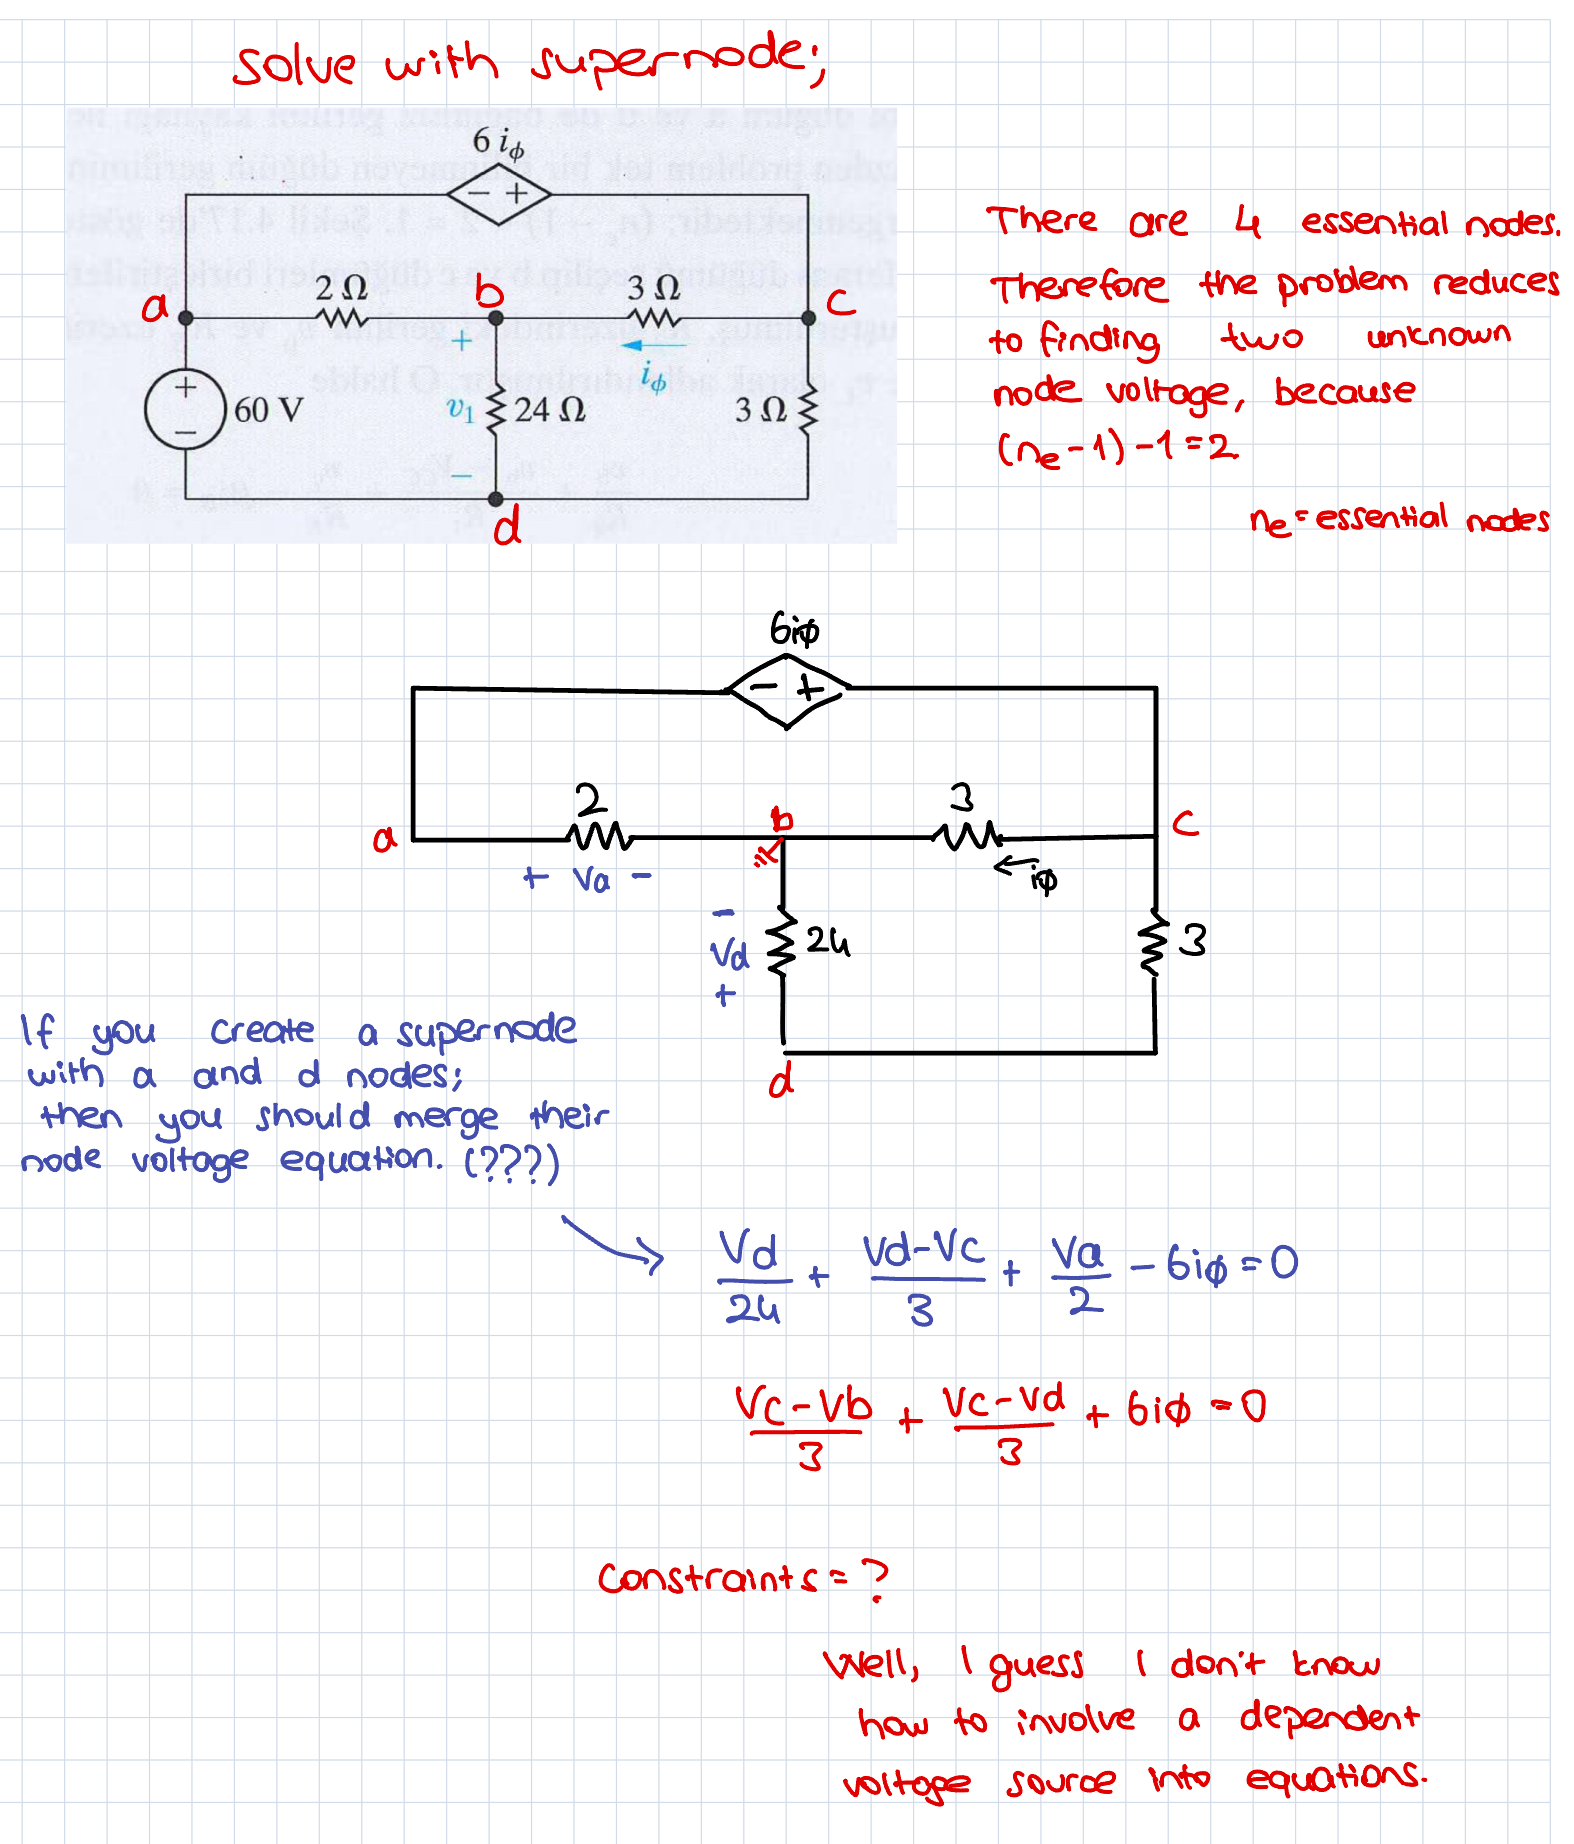 solve with supernode;
6 iϕ
− +
a
2 Ω
b
3 Ω
c
+
iϕ
+
−
60 V
v1
24 Ω
3 Ω
−
d
There are 4 essential nodes.
Therefore the problem reduces
to finding two unknown
node voltage, because
(ne-1)-1=2
ne=essential nodes
6iϕ
− +
2
b
3
a
c
+ Va −
iϕ
−
Vd
+
24
3
d
If you create a supernode
with a and d nodes;
then you should merge their
node voltage equation. (???)
Vd/24 + Vd-Vc/3 + Va/2 - 6iϕ = 0
Vc-Vb/3 + Vc-Vd/3 + 6iϕ = 0
Constraints = ?
Well, I guess I don't know
how to involve a dependent
voltage source into equations.